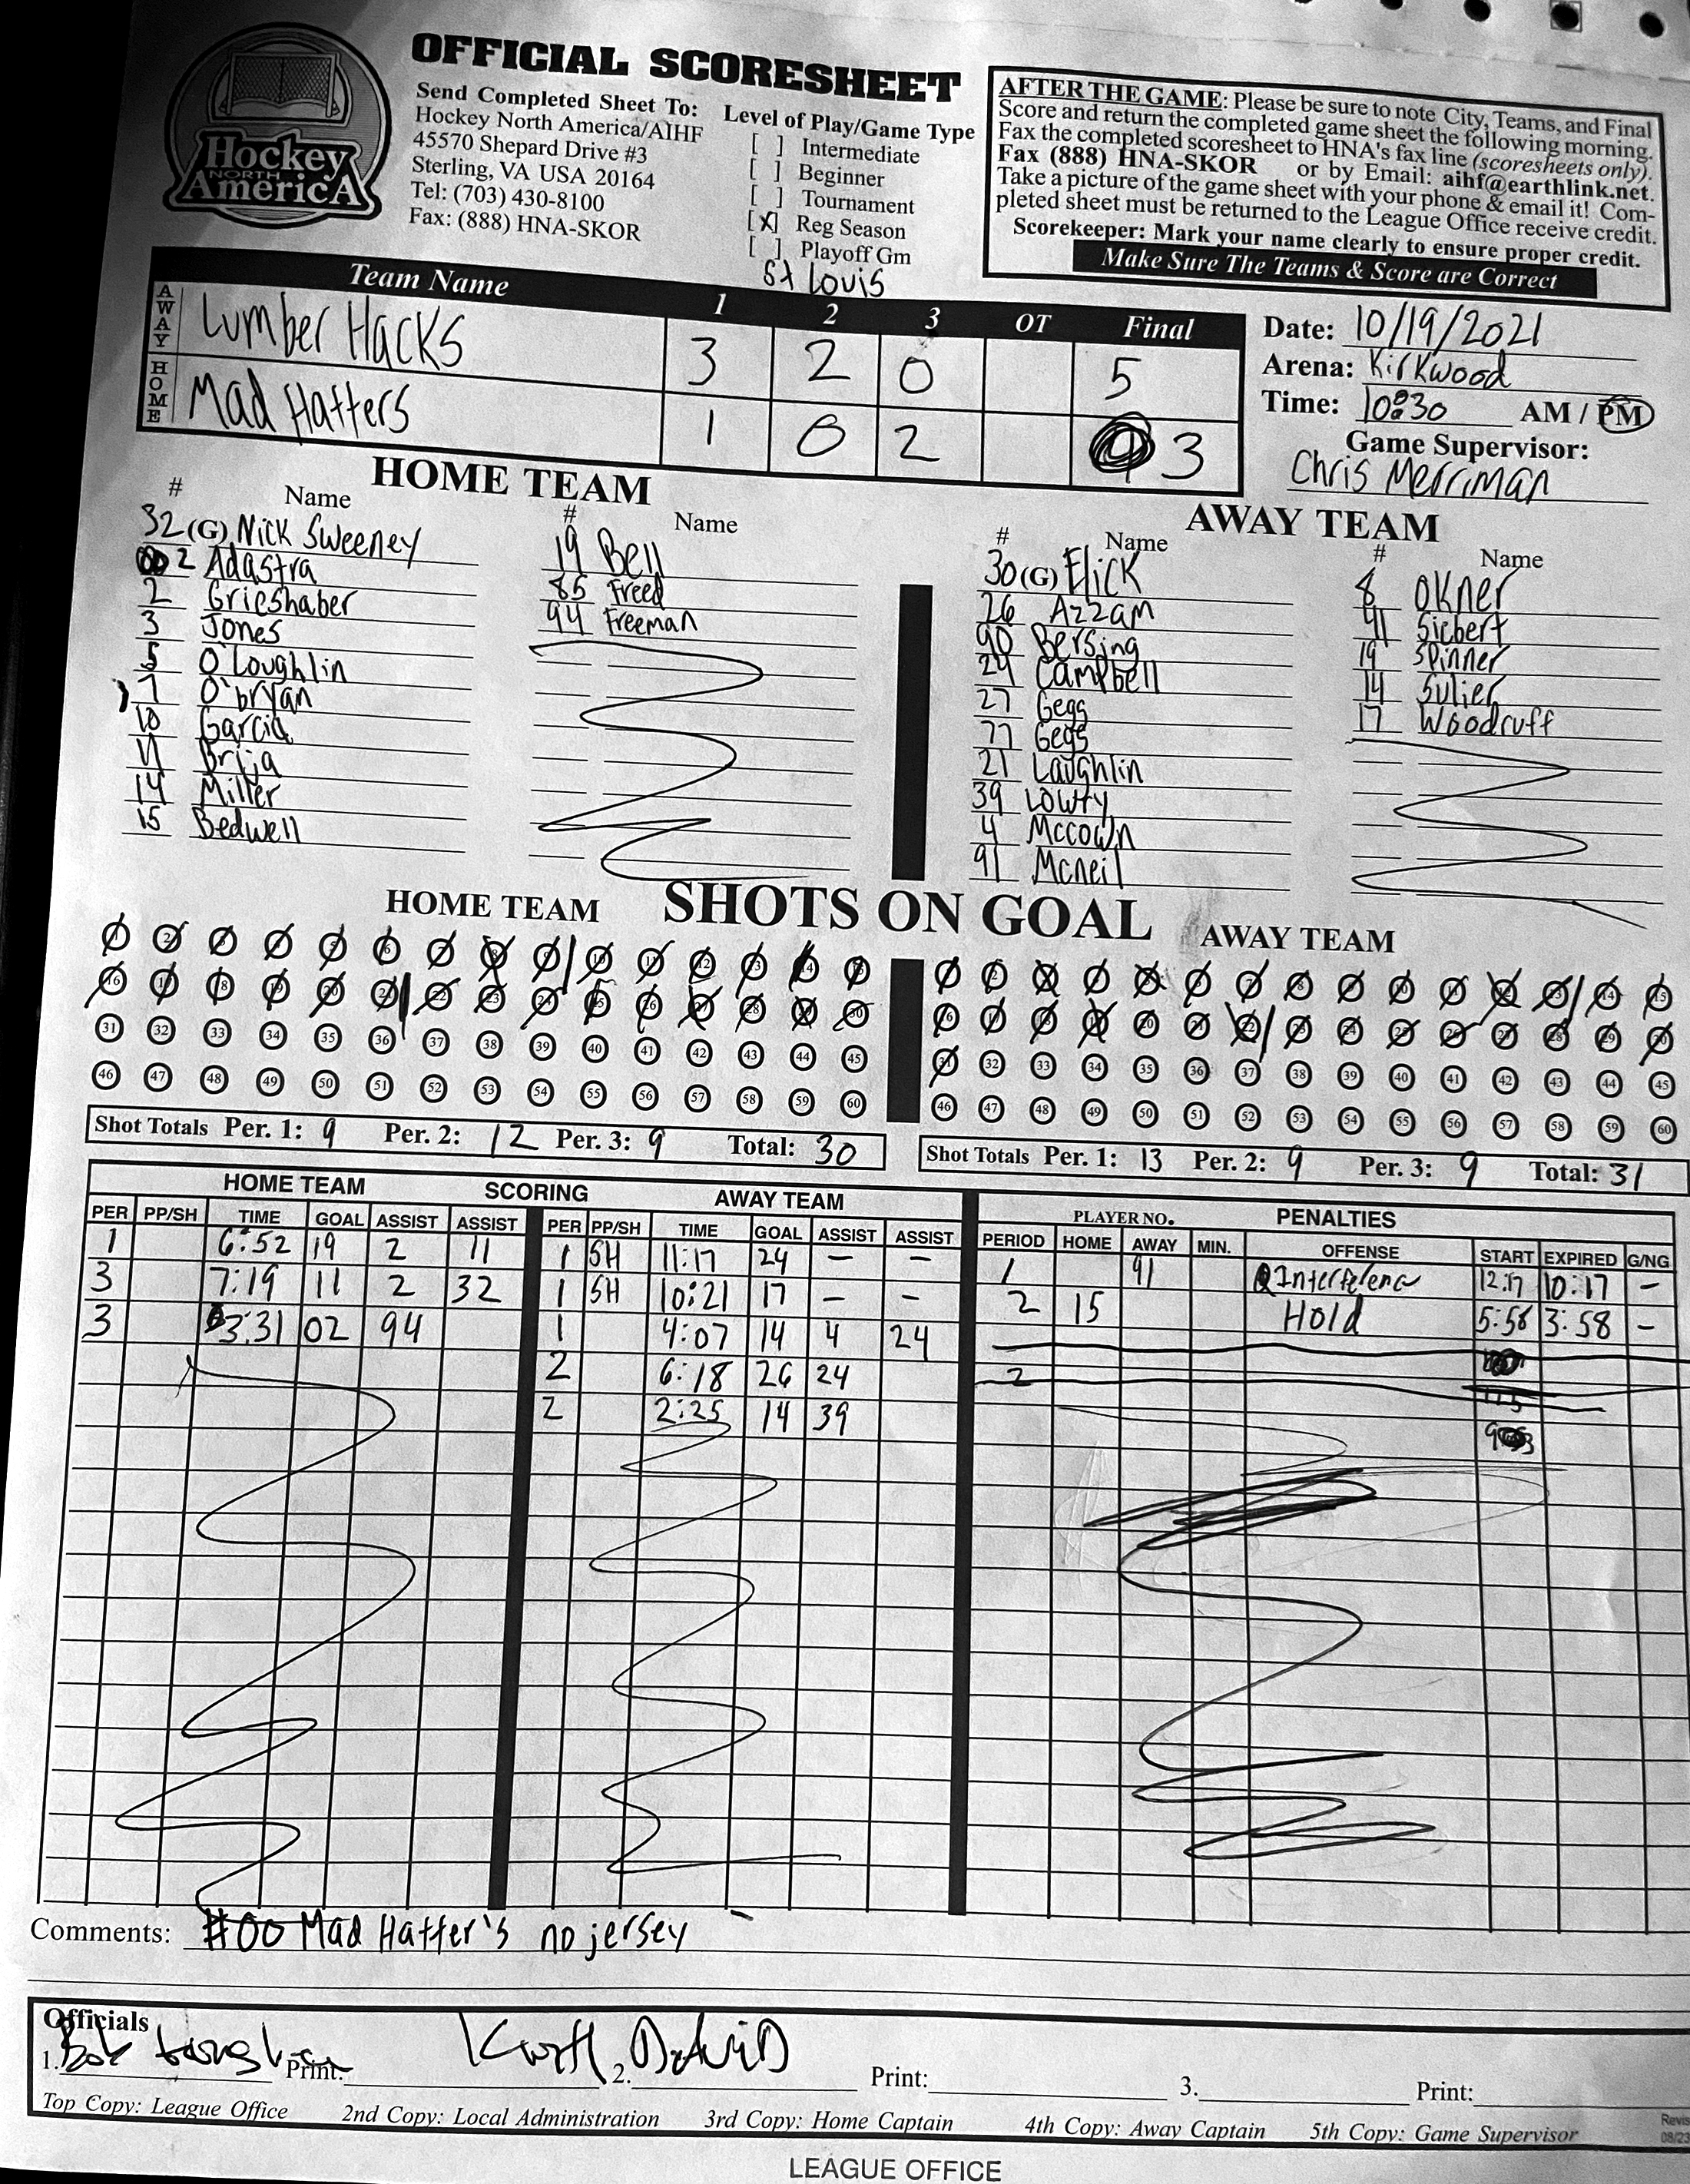 OFFICIAL SCORESHEET
Hockey
NORTH
AmericA
Send Completed Sheet To:
Hockey North America/AIHF
45570 Shepard Drive #3
Sterling, VA USA 20164
Tel: (703) 430-8100
Fax: (888) HNA-SKOR
Level of Play/Game Type
[ ] Intermediate
[ ] Beginner
[ ] Tournament
[X] Reg Season
[ ] Playoff Gm
St Louis
AFTER THE GAME: Please be sure to note City, Teams, and Final
Score and return the completed game sheet the following morning.
Fax the completed scoresheet to HNA's fax line (scoresheets only).
Fax (888) HNA-SKOR or by Email: aihf@earthlink.net.
Take a picture of the game sheet with your phone & email it! Com-
pleted sheet must be returned to the League Office receive credit.
Scorekeeper: Mark your name clearly to ensure proper credit.
Make Sure The Teams & Score are Correct
Team Name 1 2 3 OT Final
AWAY Lumber Hacks 3 2 0 5
HOME Mad Hatters 1 0 2 3
Date: 10/19/2021
Arena: Kirkwood
Time: 10:30 AM / PM
Game Supervisor:
Chris Merriman
HOME TEAM
# Name # Name
32 (G) Nick Sweeney 19 Bell
2 Adastra 85 Freed
2 Grieshaber 94 Freeman
3 Jones
5 O'Loughlin
7 O'bryan
10 Garcia
11 Brija
14 Miller
15 Bedwell
AWAY TEAM
# Name # Name
30 (G) Elick 8 Okner
26 Azzam 41 Siebert
90 Bersing 19 Spinner
24 Campbell 14 Sulier
27 Gegg 17 Woodruff
77 Gegg
21 Laughlin
39 Lowry
4 Mccown
91 Mcneil
SHOTS ON GOAL
HOME TEAM
31 32 33 34 35 36 37 38 39 40 41 42 43 44 45
46 47 48 49 50 51 52 53 54 55 56 57 58 59 60
Shot Totals Per. 1: 9 Per. 2: 12 Per. 3: 9 Total: 30
AWAY TEAM
32 33 34 35 36 37 38 39 40 41 42 43 44 45
46 47 48 49 50 51 52 53 54 55 56 57 58 59 60
Shot Totals Per. 1: 13 Per. 2: 9 Per. 3: 9 Total: 31
HOME TEAM SCORING AWAY TEAM
PER PP/SH TIME GOAL ASSIST ASSIST PER PP/SH TIME GOAL ASSIST ASSIST
1 6:52 19 2 11 1 SH 11:17 24 - -
3 7:19 11 2 32 1 SH 10:21 17 - -
3 3:31 02 94 1 4:07 14 4 24
2 6:18 26 24
2 2:25 14 39
PLAYER NO. PENALTIES
PERIOD HOME AWAY MIN. OFFENSE START EXPIRED G/NG
1 91 Interference 12:17 10:17 -
2 15 Hold 5:58 3:58 -
2
Comments: #00 Mad Hatter's no jersey
Officials
1. Print: 2. Print: 3. Print:
Top Copy: League Office 2nd Copy: Local Administration 3rd Copy: Home Captain 4th Copy: Away Captain 5th Copy: Game Supervisor
LEAGUE OFFICE